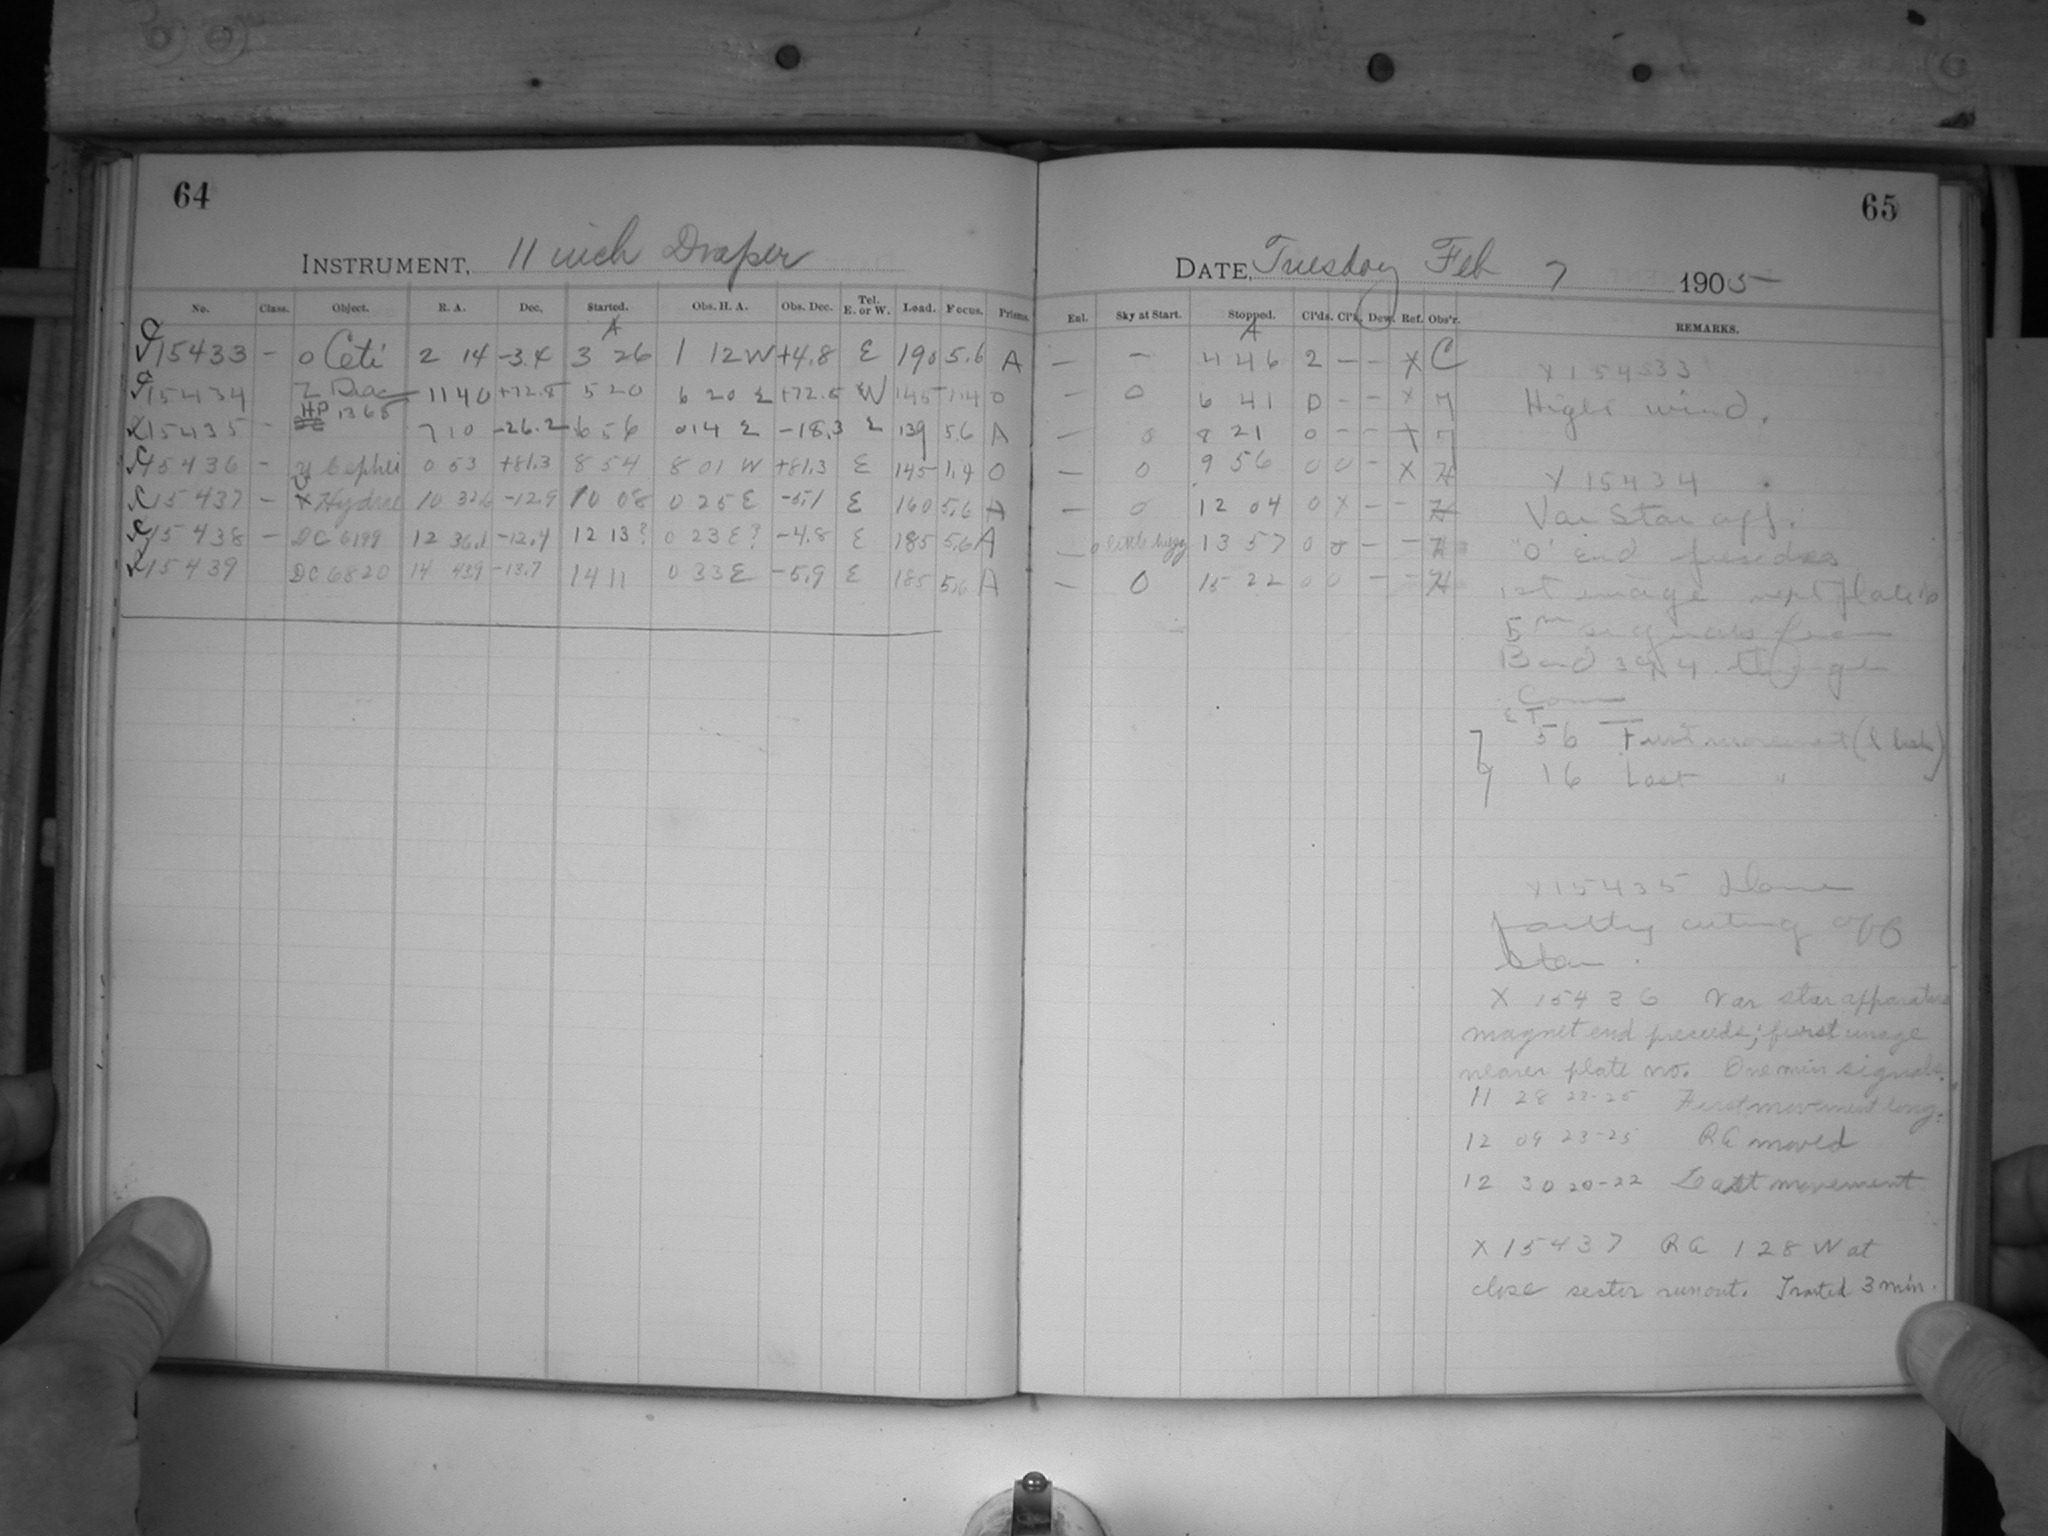 64
INSTRUMENT, 11 inch Draper
No. Class. Object. R. A. Dec. Started. Obs. H. A. Obs. Dec. Tel. E. or W. Load. Focus. Prisms.
A
15433 – o Ceti 2 14 -3.4 3 26 1 12 W +4.8 E 190 5.6 A
15434 Z Drac 11 40 +72.8 5 20 6 20 E +72.5 W 145 1.4 0
HP 1365
15435 – 7 10 -26.2 6 56 0 14 E -18.3 E 139 5.6 A
15436 – Cephei 0 53 +81.3 8 54 8 01 W +81.3 E 145 1.4 0
15437 – Hydrae 10 32.6 -12.9 10 08 0 25 E -5.1 E 160 5.6 A
15438 – DC 6199 12 36.1 -12.4 12 13? 0 23 E? -4.8 E 185 5.6 A
15439 DC 6820 14 43.9 -13.7 14 11 0 33 E -5.9 E 185 5.6 A
65
DATE, Tuesday Feb 7 1905
Enl. Sky at Start. Stopped. Cl'ds. Cl'k. Dew. Ref. Obs'r. REMARKS.
A
– – 4 46 2 – – X C
– 0 6 41 0 – – X
– 0 8 21 0 – –
– 0 9 56 0 0 – X H
– 0 12 04 0 X – – H
– 0 little hazy 13 57 0 0 – – H
– 0 15 22 0 0 – – H
X 15433
High wind.
X 15434
Var Star app.
"0" end precedes
1st image next plate no
5m signals from
Bond 394 through
Comm
E T
56 First movement
16 Last "
X 15435 Dome
partly cutting off
star.
X 15436 Var star apparatus
magnet end precedes; first image
nearer plate no. One min signals.
11 28 23-25 First movement long.
12 09 23-25 RA moved
12 30 20-22 Last movement
X 15437 RA 1 28 W at
close sector runout. Trailed 3 min.